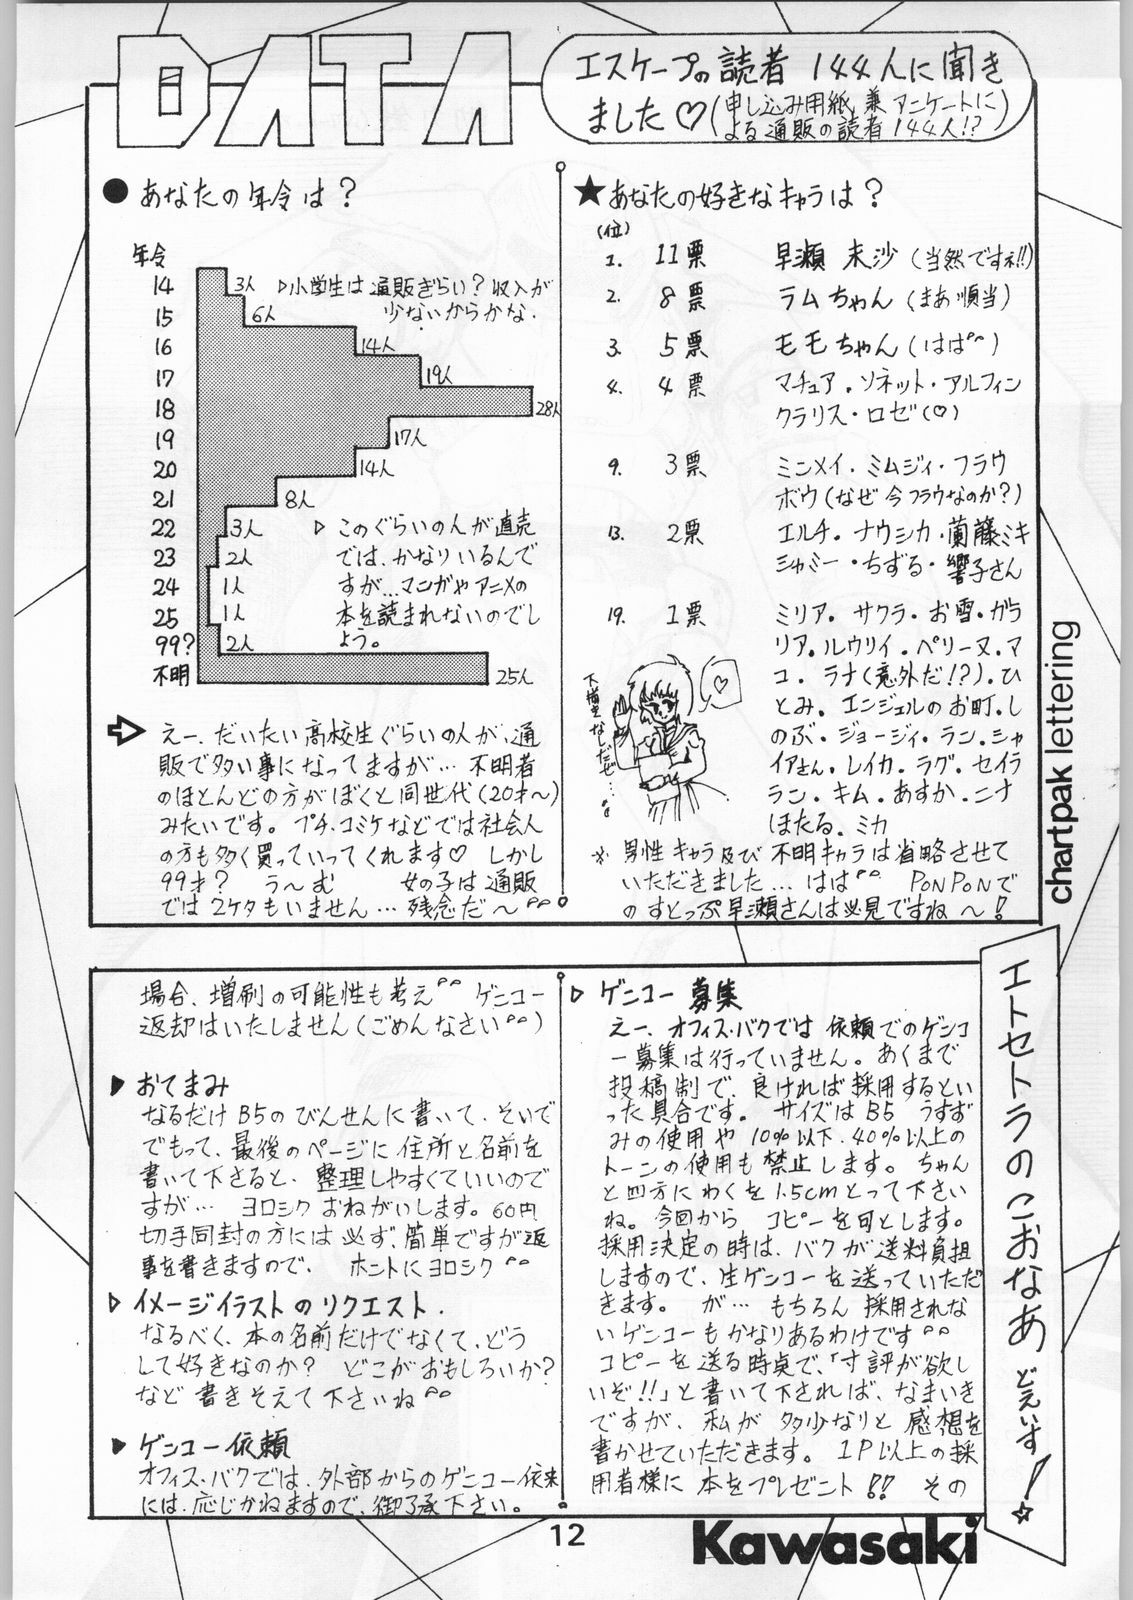 DATA
エスケープの読者 144人に聞き
ました♡(申し込み用紙、兼 アンケートに
よる通販の読者 144人!?)
●あなたの年令は?
年令
14 3人 ▷小学生は通販ぎらい? 収入が
少ないからかな.
15 6人
16 14人
17 19人
18 28人
19 17人
20 14人
21 8人
22 3人 ▷このぐらいの人が直売
では、かなりいるんで
すが…マンガやアニメの
本を読まれないのでし
ょう。
23 2人
24 1人
25 1人
99? 2人
不明 25人
⇨ えー、だいたい高校生ぐらいの人が、通
販で多い事になってますが… 不明者
のほとんどの方がぼくと同世代(20才〜)
みたいです。 プチ・コミケなどでは社会人
の方も多く買っていってくれます♡ しかし
99才? う〜む 女の子は通販
では2ケタもいません… 残念だ〜
★あなたの好きなキャラは?
(位)
1. 11票 早瀬 未沙 (当然ですネ!!)
2. 8票 ラムちゃん (まあ順当)
3. 5票 モモちゃん (はは)
4. 4票 マチュア・ソネット・アルフィン
クラリス・ロゼ(♡)
9. 3票 ミンメイ・ミムジィ・フラウ
ボウ(なぜ今フラウなのか?)
13. 2票 エルチ・ナウシカ・蘭藤ミキ
シャミー・ちずる・響子さん
19. 1票 ミリア・サクラ・お雪・ガラ
リア・ルウリィ・ペリーヌ・マ
コ・ラナ(意外だ!?)・ひ
とみ・エンジェルのお町・し
のぶ・ジョージィ・ラン・シャ
イアさん・レイカ・ラグ・セイラ
ラン・キム・あすか・ニナ
ほたる・ミカ
下描きなしだぜ…
♡
※ 男性キャラ及び 不明キャラは省略させて
いただきました… はは PONPONで
のすとっぷ早瀬さんは必見ですね〜!
chartpak lettering
エトセトラのこおなあ どえいす!☆
▷ ゲンコー 募集
えー、オフィス・バクでは 依頼でのゲンコ
ー募集は行っていません。あくまで
投稿制で、良ければ採用するとい
った具合です。 サイズはB5 うすず
みの使用や 10%以下、40%以上の
トーンの使用も禁止します。ちゃん
と四方にわくを1.5cmとって下さい
ね。今回から コピーを可とします。
採用決定の時は、バクが送料負担
しますので、生ゲンコーを送っていただ
きます。 が… もちろん 採用されな
いゲンコーもかなりあるわけです
コピーを送る時点で、「寸評が欲し
いぞ!!」と書いて下されば、なまいき
ですが、私が 多少なりと 感想を
書かせていただきます。1P以上の採
用者様に 本をプレゼント!! その
場合、増刷の可能性も考え ゲンコー
返却はいたしません(ごめんなさい)
▶ おてまみ
なるだけ B5のびんせんに書いて、そいで
でもって、最後のページに住所と名前を
書いて下さると、整理しやすくていいので
すが… ヨロシクおねがいします。60円
切手同封の方には必ず、簡単ですが返
事を書きますので、 ホントにヨロシク
▷ イメージイラストのリクエスト.
なるべく、本の名前だけでなくて、どう
して好きなのか? どこがおもしろいか?
など 書きそえて下さいね
▶ ゲンコー依頼
オフィス・バクでは、外部からのゲンコー依来
には、応じかねますので、御了承下さい。
12
Kawasaki